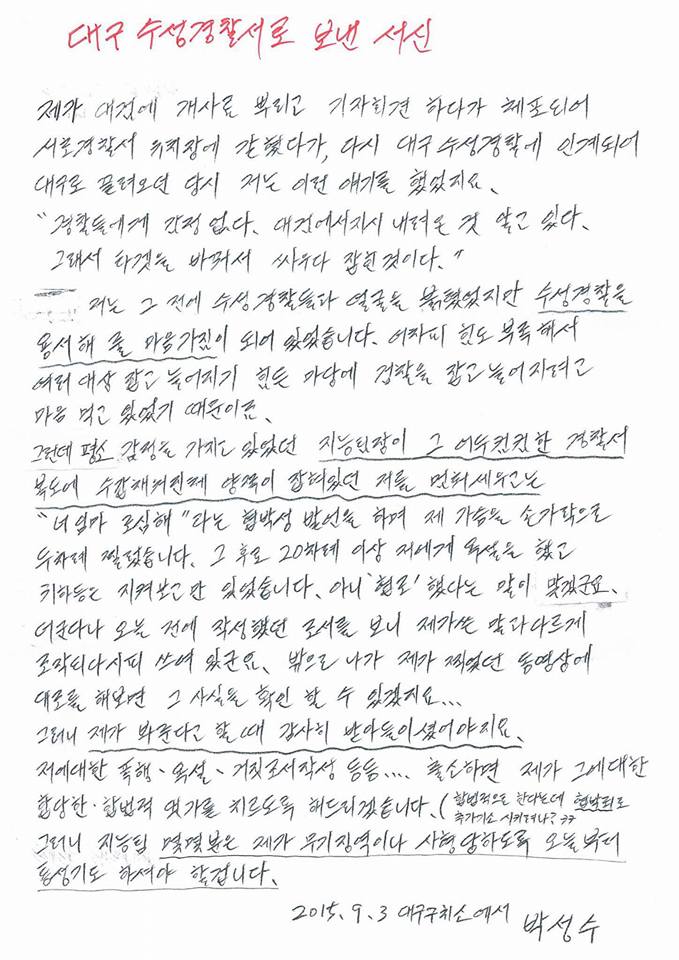 대구 수성경찰서로 보낸 서신
제가 대검에 개사료 뿌리고 기자회견 하다가 체포되어
서초경찰서 유치장에 갇혔다가, 다시 대구 수성경찰에 인계되어
대구로 끌려오던 당시 저는 이런 얘기를 했었지요.
"경찰들에게 감정 없다. 대검에서 지시 내려온 것 알고 있다.
그래서 타겟을 바꿔서 싸우다 잡힌것이다."
저는 그 전에 수성경찰들과 얼굴을 붉혔었지만 수성경찰을
용서해 줄 마음가짐이 되어 있었습니다. 어차피 힘도 부족해서
여러 대상 잡고 늘어지기 힘든 마당에 검찰을 잡고 늘어지려고
마음 먹고 있었기 때문이죠.
그런데 평소 감정을 가지고 있었던 지능팀장이 그 어두컴컴한 경찰서
복도에 수갑채워진채 양쪽이 잡혀있던 저를 멈춰세우고는
"너 임마 조심해"라는 협박성 발언을 하며 제 가슴을 손가락으로
두차례 찔렀습니다. 그 후로 20차례 이상 저에게 욕설을 했고
부하들은 지켜보고만 있었습니다. 아니 '협조'했다는 말이 맞겠군요.
더군다나 오늘 전에 작성했던 조서를 보니 제가쓴 말과 다르게
조작되다시피 쓰여 있군요. 밖으로 나가 제가 찍었던 동영상에
대조를 해보면 그 사실을 확인 할 수 있겠지요...
그러니 제가 봐준다고 할 때 감사히 받아들이셨어야지요.
저에대한 폭행·욕설·거짓조서작성 등등.... 출소하면 제가 그에대한
합당한·합법적 댓가를 치르도록 해드리겠습니다. (합법적으로 한다는데 협박죄로
추가기소 시키려나? ㅋㅋ
그러니 지능팀 몇몇분은 제가 무기징역이나 사형 당하도록 오늘부터
통성기도 하셔야 할겁니다.
2015. 9. 3 대구구치소에서 박성수